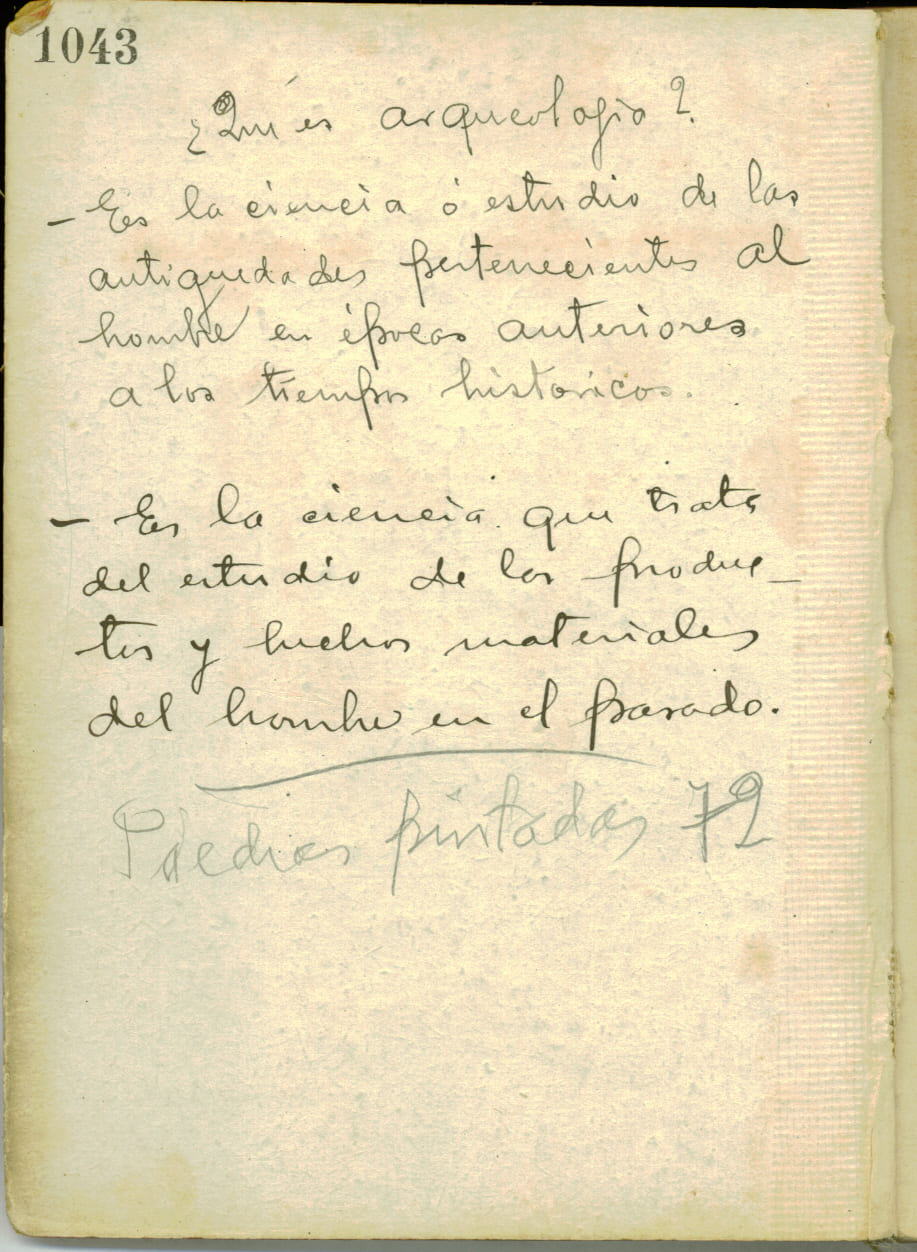 1043
¿Qué es arqueología?
- Es la ciencia ó estudio de las
antiguedades pertenecientes al
hombre en épocas anteriores
a los tiempos históricos.
- Es la ciencia que trata
del estudio de los produc-
tos y hechos materiales
del hombre en el pasado.
Piedras pintadas 72